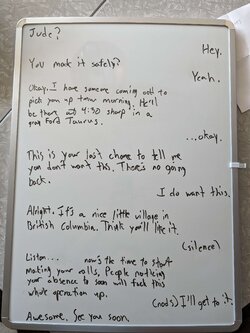 Jude?
Hey.
You make it safely?
Yeah.
Okay. I have someone coming out to
pick you up tmw morning. He'll
be there 4:30 sharp in a
gray Ford Taurus.
...okay.
This is your last chance to tell me
you don't want this. There's no going
back.
I do want this.
Alright. It's a nice little village in
British Columbia. Think you'll like it.
(silence)
Listen... now's the time to start
making your calls. People noticing
your absence to soon will fuck this
whole operation up.
(nods) I'll get to it.
Awesome. See you soon.